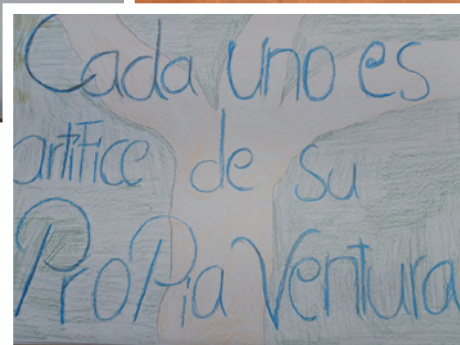 Cada uno es
artifice de su
ProPia Ventura